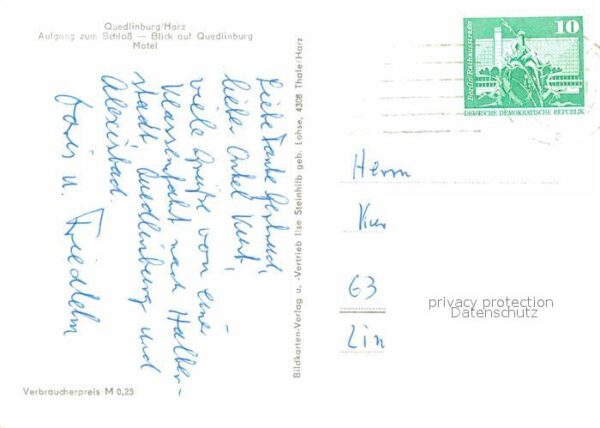 Quedlinburg/Harz
Aufgang zum Schloß — Blick auf Quedlinburg
Motel
Liebe Tante Gertrud,
lieber Onkel Kurt,
viele Grüße von einer
Klassenfahrt nach Halber-
stadt Quedlinburg und
Alexisbad.
Doris u. Friedhelm
Bildkarten-Verlag u. -Vertrieb Ilse Steinhilb geb. Lohse, 4308 Thale/Harz
Verbraucherpreis M 0,25
10
Berlin, Rathausstraße
DEUTSCHE DEMOKRATISCHE REPUBLIK
Herrn
Kur
63
privacy protection
Datenschutz